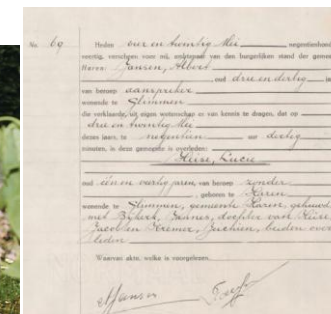 No. 69 Heden vier en twintig Mei negentienhond
veertig, verscheen voor mij, ambtenaar van den burgerlijken stand der gemee
Haren: Jansen, Albert
oud drie en dertig
van beroep aanspreker
wonende te Glimmen
die verklaarde, uit eigen wetenschap er van kennis te dragen, dat op
drie en twintig Mei
dezes jaars, te negentien ure dertig
minuten, in deze gemeente is overleden:
Hüise, Lucie
oud één en veertig jaren van beroep zonder
, geboren te Haren
wonende te Glimmen, gemeente Haren, gehuwd
met Bijkerk, Jannes, dochter van Hüise
Jacob en Kremer, Jechien, beiden over
leden.
Waarvan akte, welke is voorgelezen.
AJansen